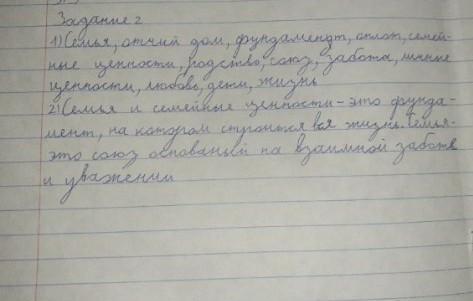 Задание 2
1) Семья, отчий дом, фундамендт, оплот, семей-
ные ценности, родство, союз, забота,
ценности, любовь, дети, жизнь
2) Семья и семейные ценности - это фунда-
мент, на котором строится вся жизнь. Семья-
это союз основаный на взаимной заботе
и уважении